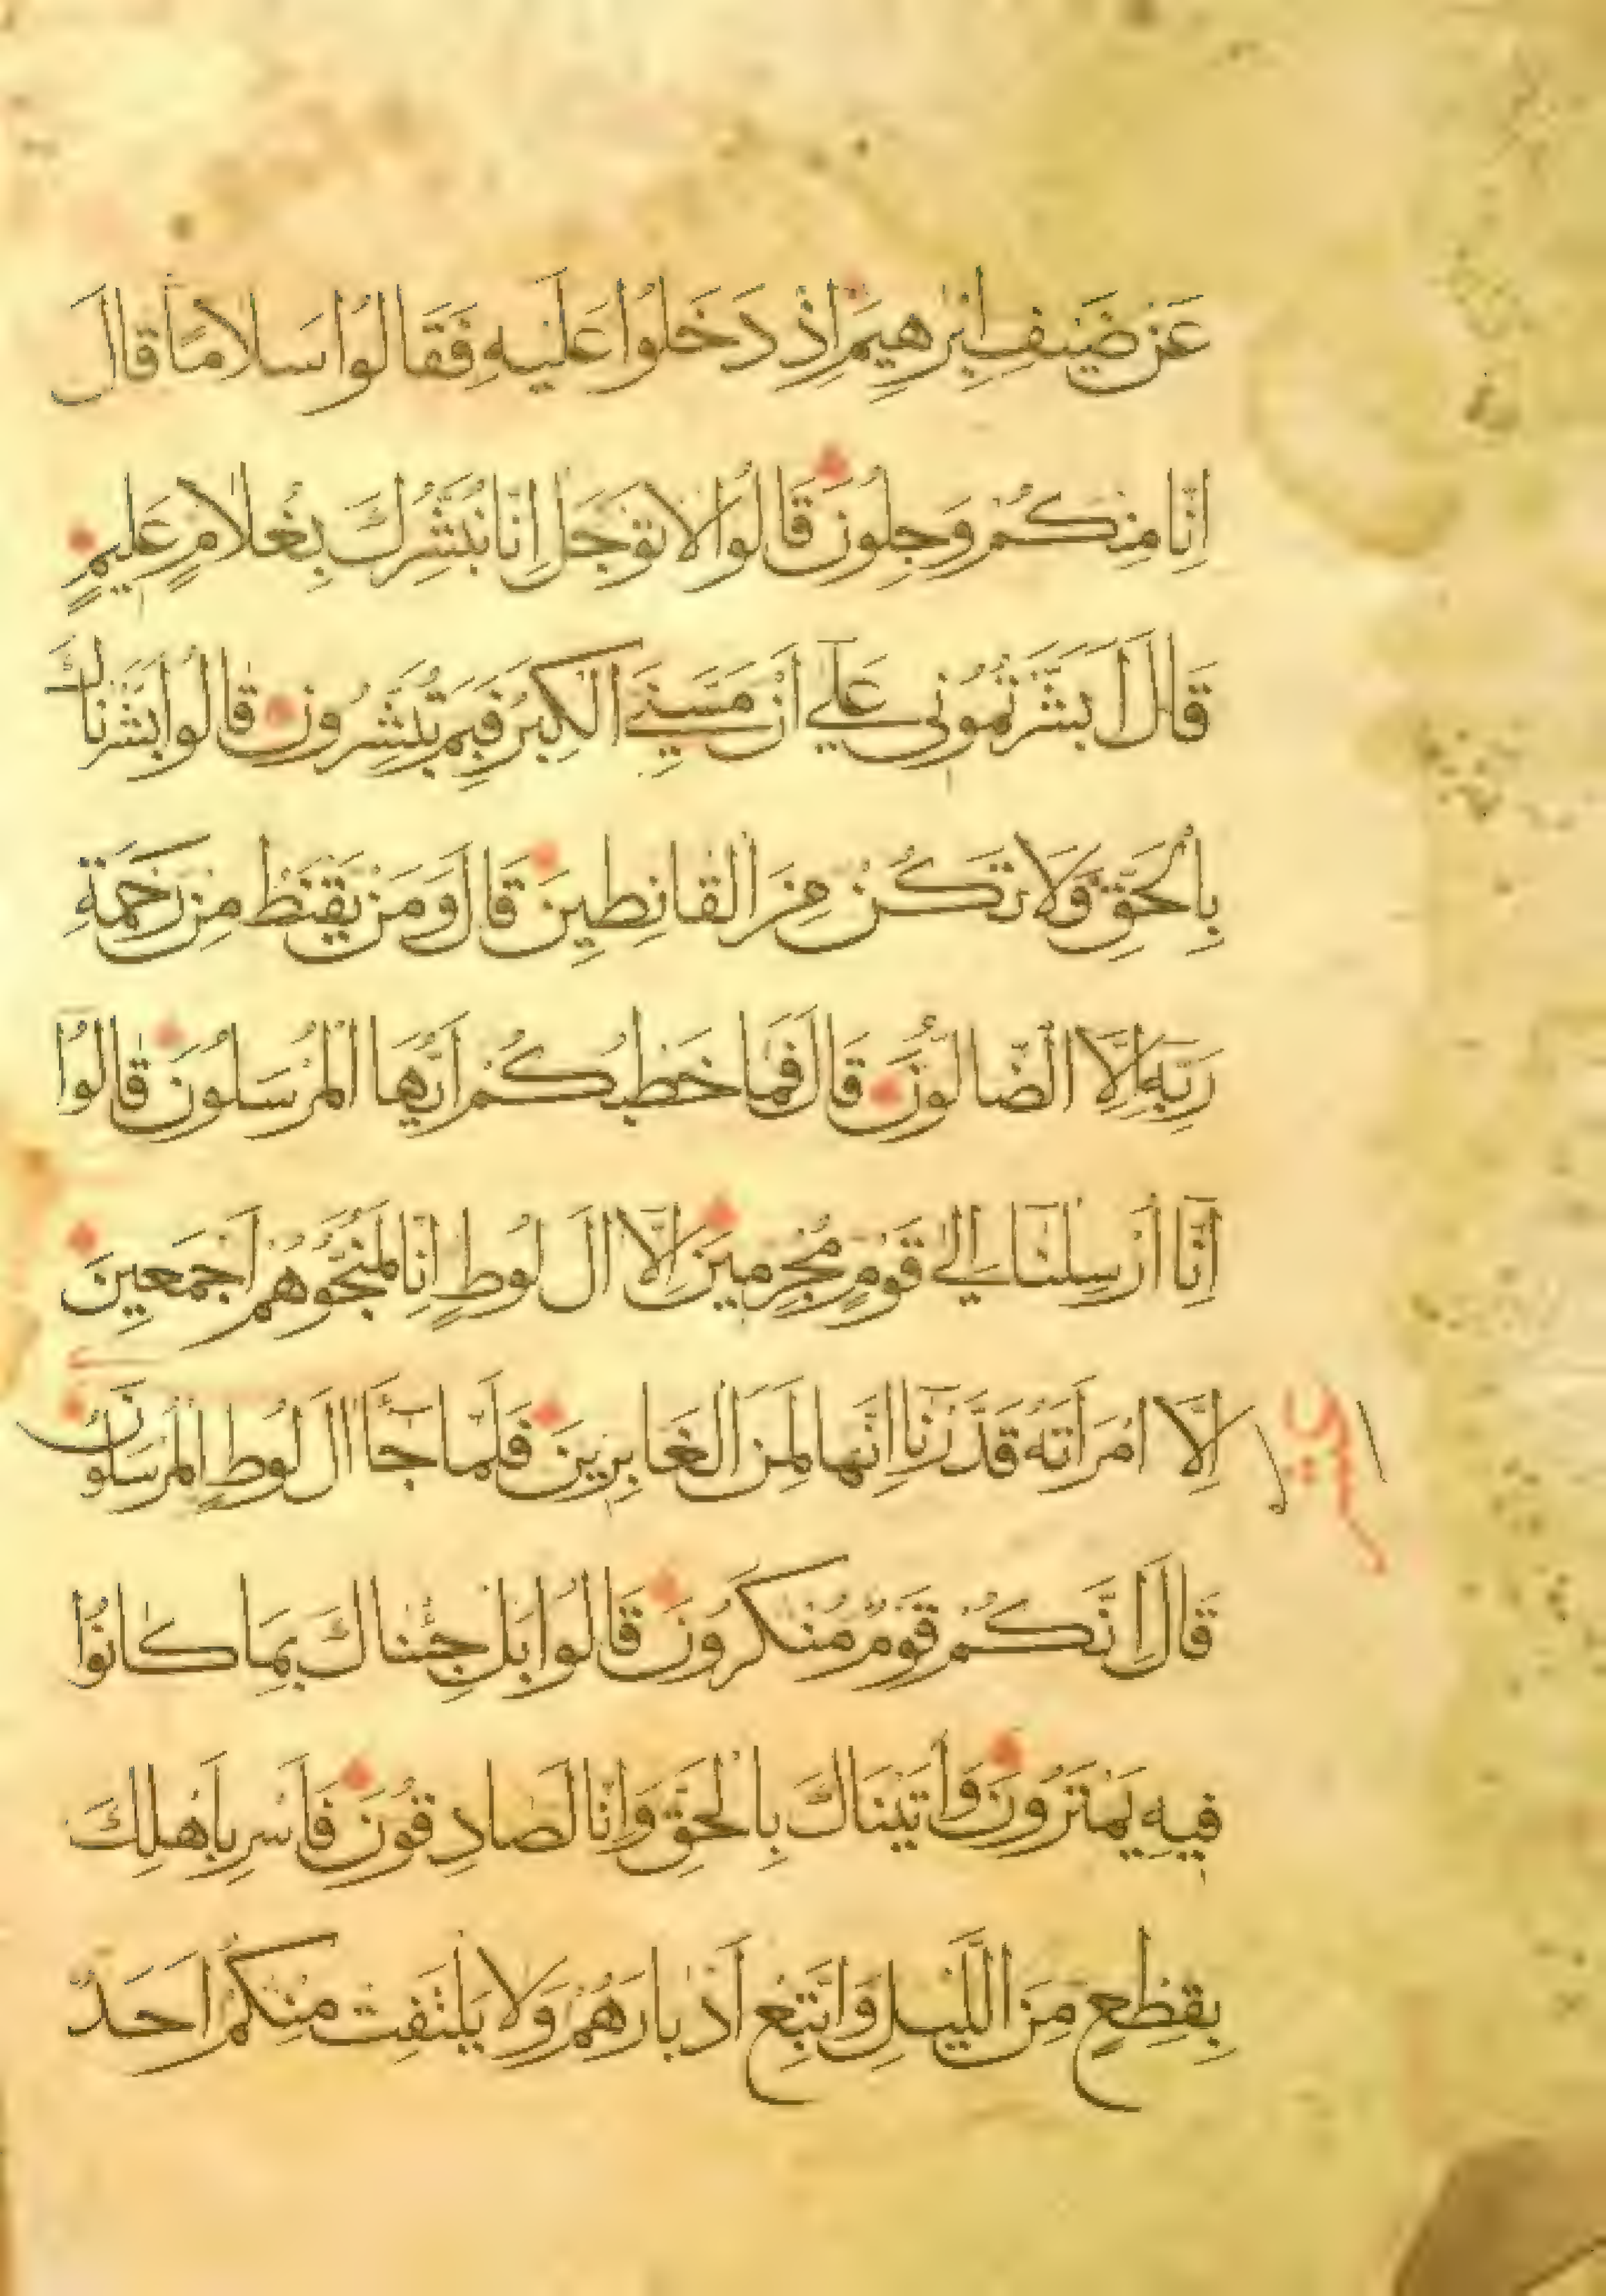 عَنْ ضَيْفِ اِبْرٰهِيمَ اِذْ دَخَلُوا عَلَيْهِ فَقَالُوا سَلَامًا قَالَ
اِنَّا مِنْكُمْ وَجِلُونَ قَالُوا لَا تَوْجَلْ اِنَّا نُبَشِّرُكَ بِغُلَامٍ عَلِيمٍ
قَالَ اَبَشَّرْتُمُونِي عَلٰٓي اَنْ مَسَّنِيَ الْكِبَرُ فَبِمَ تُبَشِّرُونَ قَالُوا بَشَّرْنَاكَ
بِالْحَقِّ وَلَا تَكُنْ مِنَ الْقَانِطِينَ قَالَ وَمَنْ يَقْنَطُ مِنْ رَحْمَةِ
رَبِّهِ اِلَّا الضَّالُّونَ قَالَ فَمَا خَطْبُكُمْ اَيُّهَا الْمُرْسَلُونَ قَالُوا
اِنَّا اُرْسِلْنَا اِلٰي قَوْمٍ مُجْرِمِينَ اِلَّا اٰلَ لُوطٍ اِنَّا لَمُنَجُّوهُمْ اَجْمَعِينَ
اِلَّا امْرَاَتَهُ قَدَّرْنَا اِنَّهَا لَمِنَ الْغَابِرِينَ فَلَمَّا جَآءَ اٰلَ لُوطٍ الْمُرْسَلُونَ
قَالَ اِنَّكُمْ قَوْمٌ مُنْكَرُونَ قَالُوا بَلْ جِئْنَاكَ بِمَا كَانُوا
فِيهِ يَمْتَرُونَ وَاَتَيْنَاكَ بِالْحَقِّ وَاِنَّا لَصَادِقُونَ فَاَسْرِ بِاَهْلِكَ
بِقِطْعٍ مِنَ اللَّيْلِ وَاتَّبِعْ اَدْبَارَهُمْ وَلَا يَلْتَفِتْ مِنْكُمْ اَحَدٌ